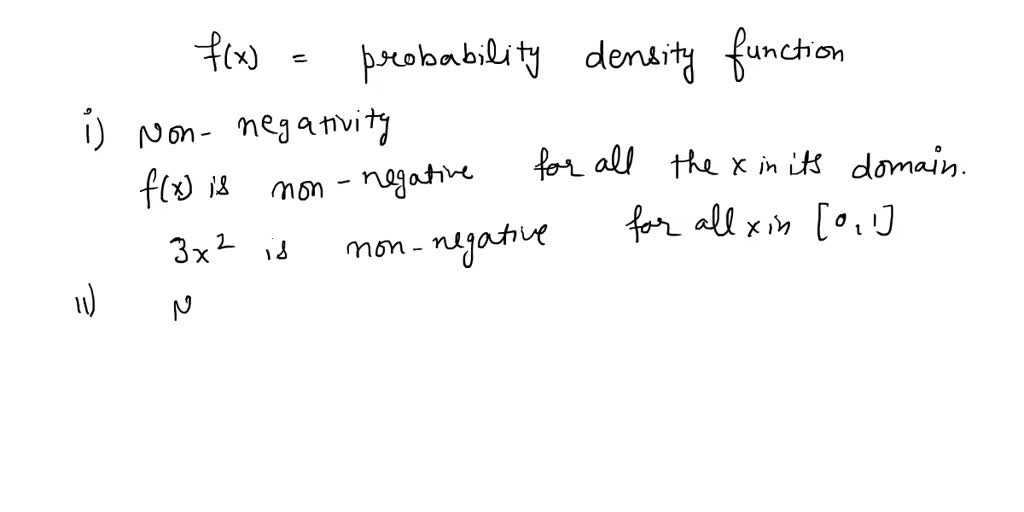 f(x) = probability density function
i) Non-negativity
f(x) is non-negative for all the x in its domain.
3x² is non-negative for all x in [0,1]
ii) N